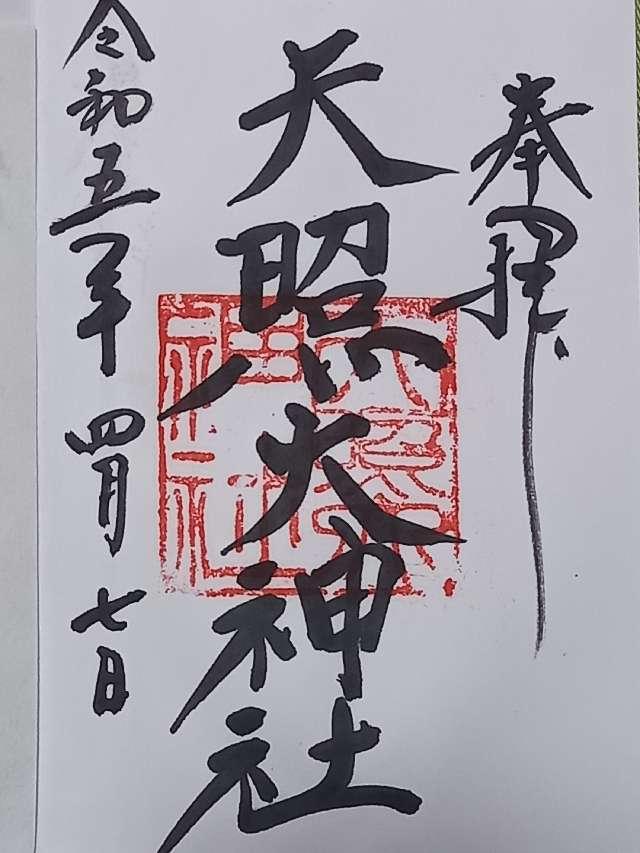 奉拝
天照大神社
令和五年四月七日